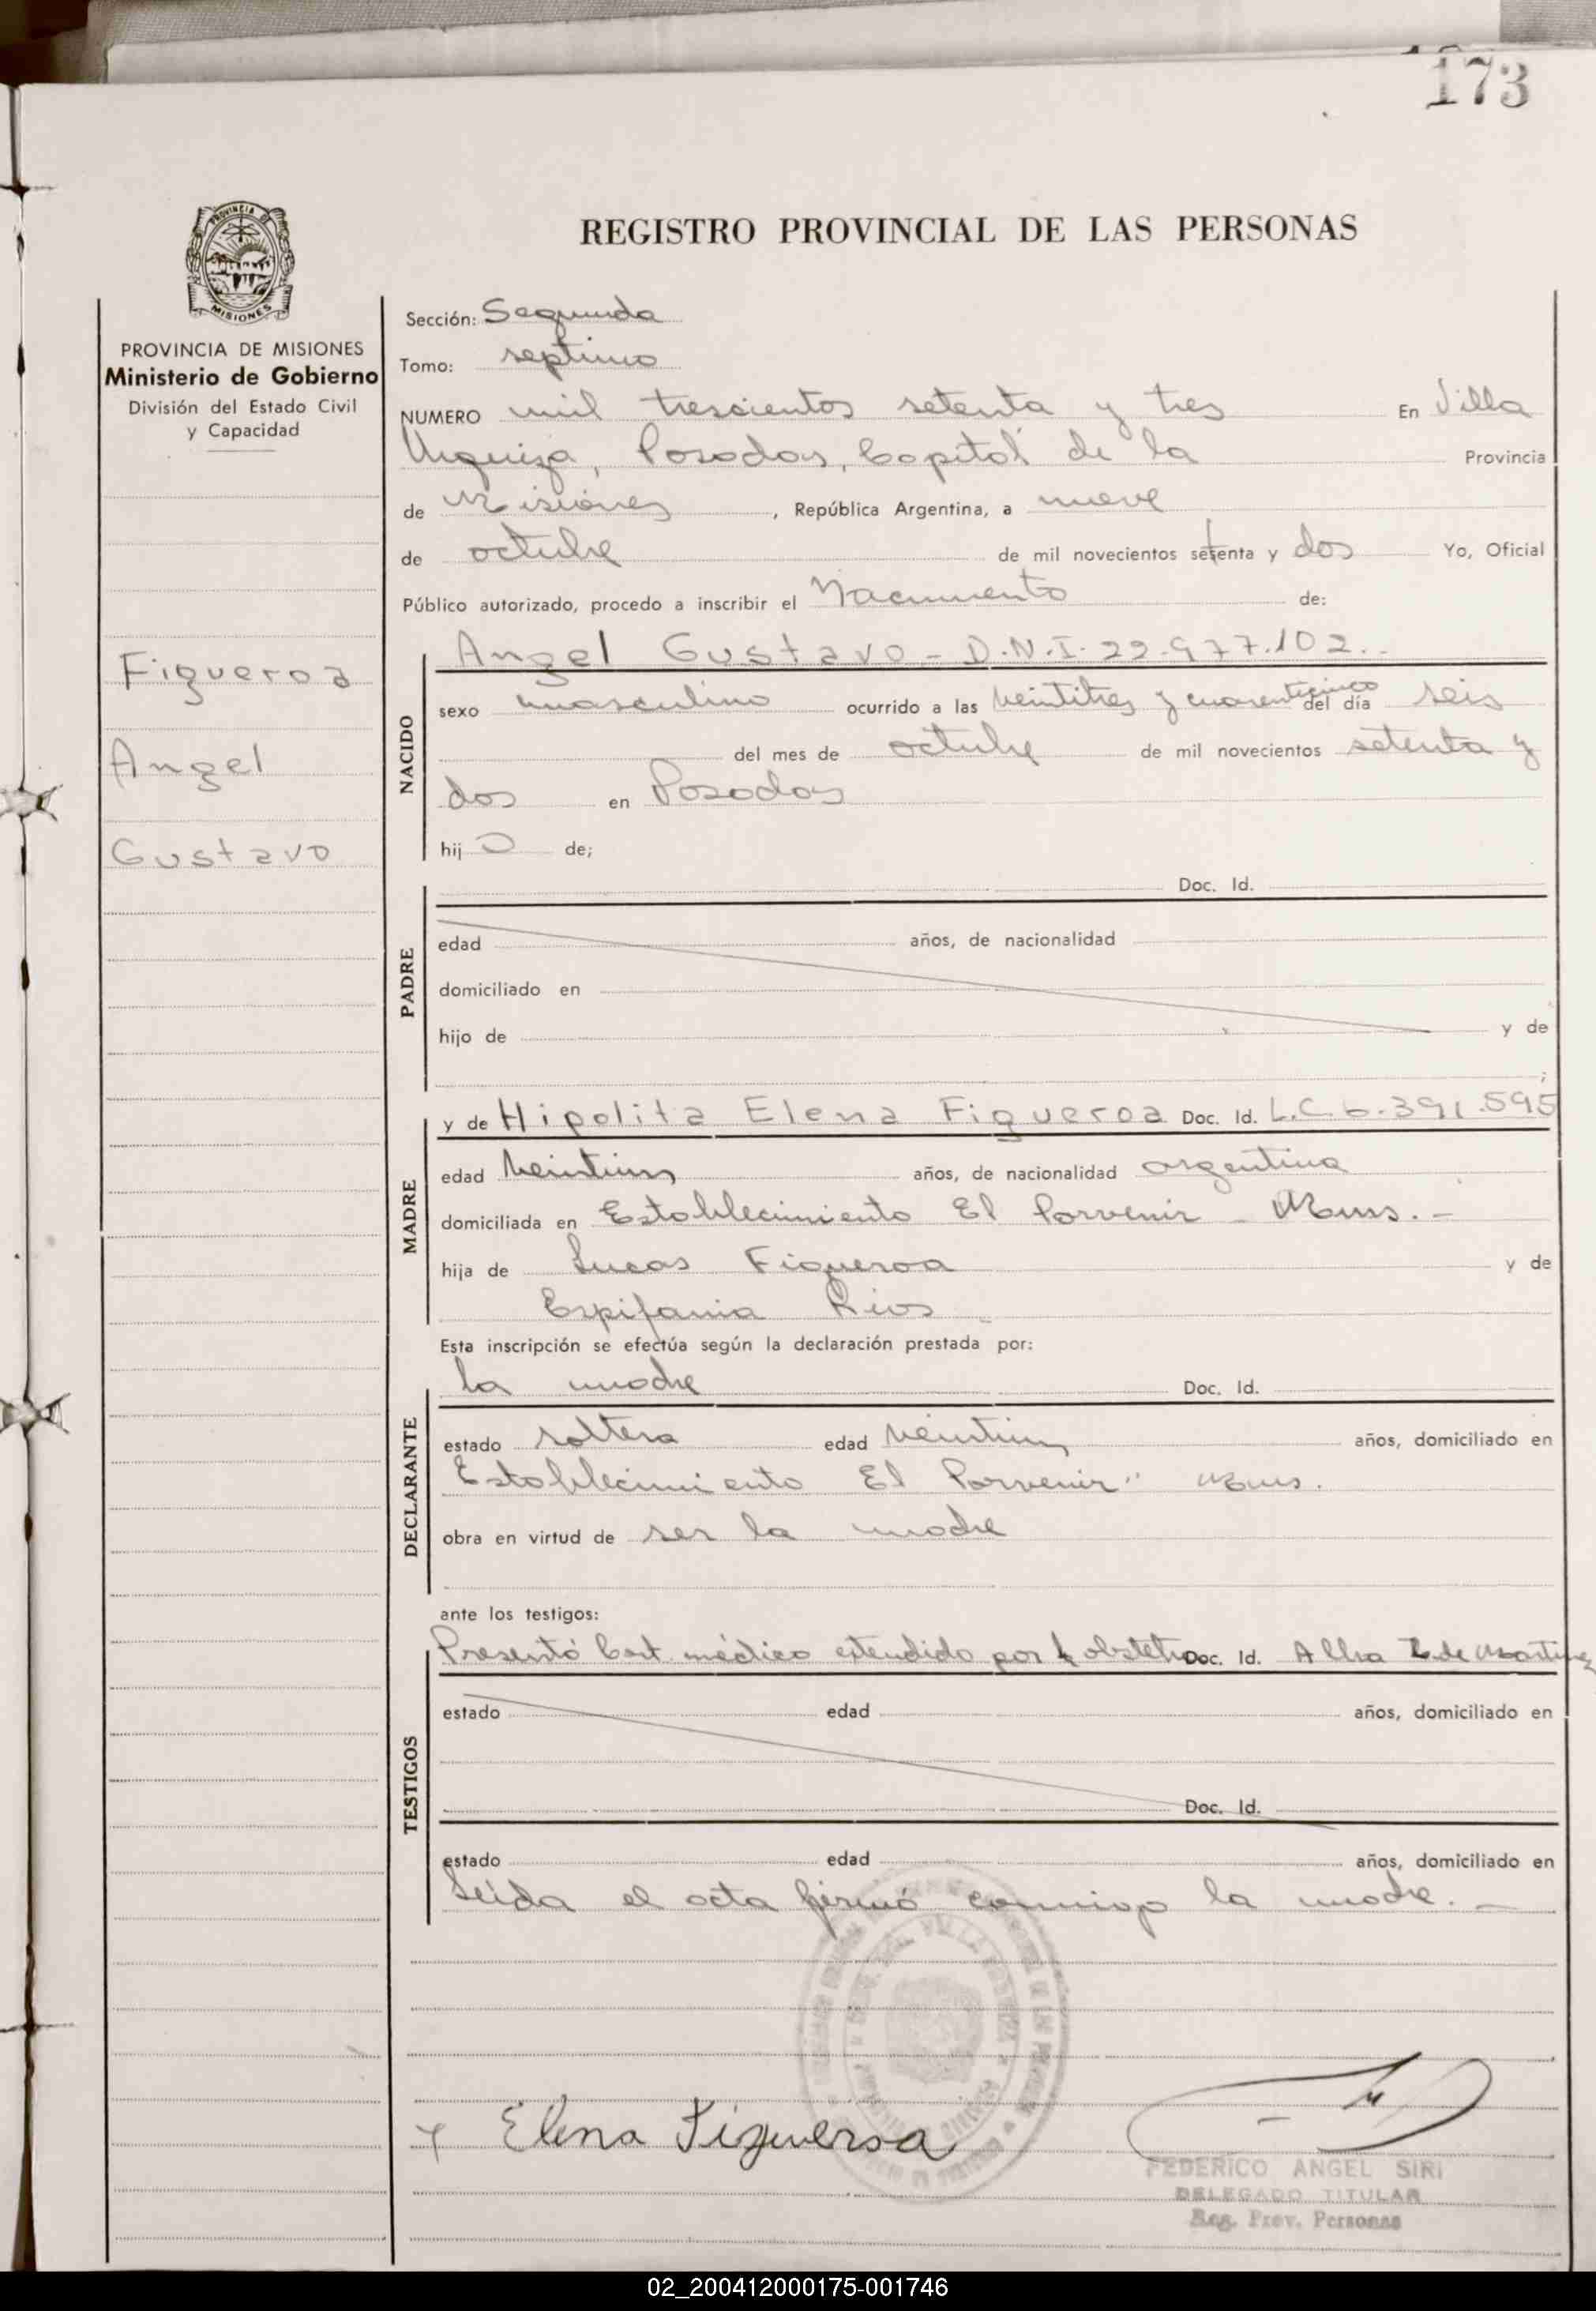 173
REGISTRO PROVINCIAL DE LAS PERSONAS
PROVINCIA DE MISIONES
MISIONES
PROVINCIA DE MISIONES
Ministerio de Gobierno
División del Estado Civil
y Capacidad
Figueroa
Angel
Gustavo
Sección: Segunda
Tomo: septimo
NUMERO mil trescientos setenta y tres En Villa
Urquiza, Posadas, Capital de la Provincia
de Misiones, República Argentina, a nueve
de octubre de mil novecientos setenta y dos Yo, Oficial
Público autorizado, procedo a inscribir el Nacimiento de:
NACIDO
Angel Gustavo - D.N.I. 22.977.102.-
sexo masculino ocurrido a las veintitres y cuarenticinco del día seis
del mes de octubre de mil novecientos setenta y
dos en Posadas
hijo de;
PADRE
Doc. Id.
edad años, de nacionalidad
domiciliado en
hijo de y de
;
MADRE
y de Hipolita Elena Figueroa Doc. Id. L.C. 6.391.595
edad veintiun años, de nacionalidad argentina
domiciliada en Establecimiento El Porvenir -
hija de Lucas Figueroa y de
Espifania Rios
Esta inscripción se efectúa según la declaración prestada por:
DECLARANTE
la madre Doc. Id.
estado soltera edad veintiun años, domiciliado en
Establecimiento El Porvenir"
obra en virtud de ser la madre
ante los testigos:
TESTIGOS
Presentó Cert médico extendido por Doc. Id. de Martinez
estado edad años, domiciliado en
Doc. Id.
estado edad años, domiciliado en
Leida el acta firmó conmigo la madre. -
Elena Figueroa
FEDERICO ANGEL SIRI
DELEGADO TITULAR
Reg. Prov. Personas
02_200412000175-001746